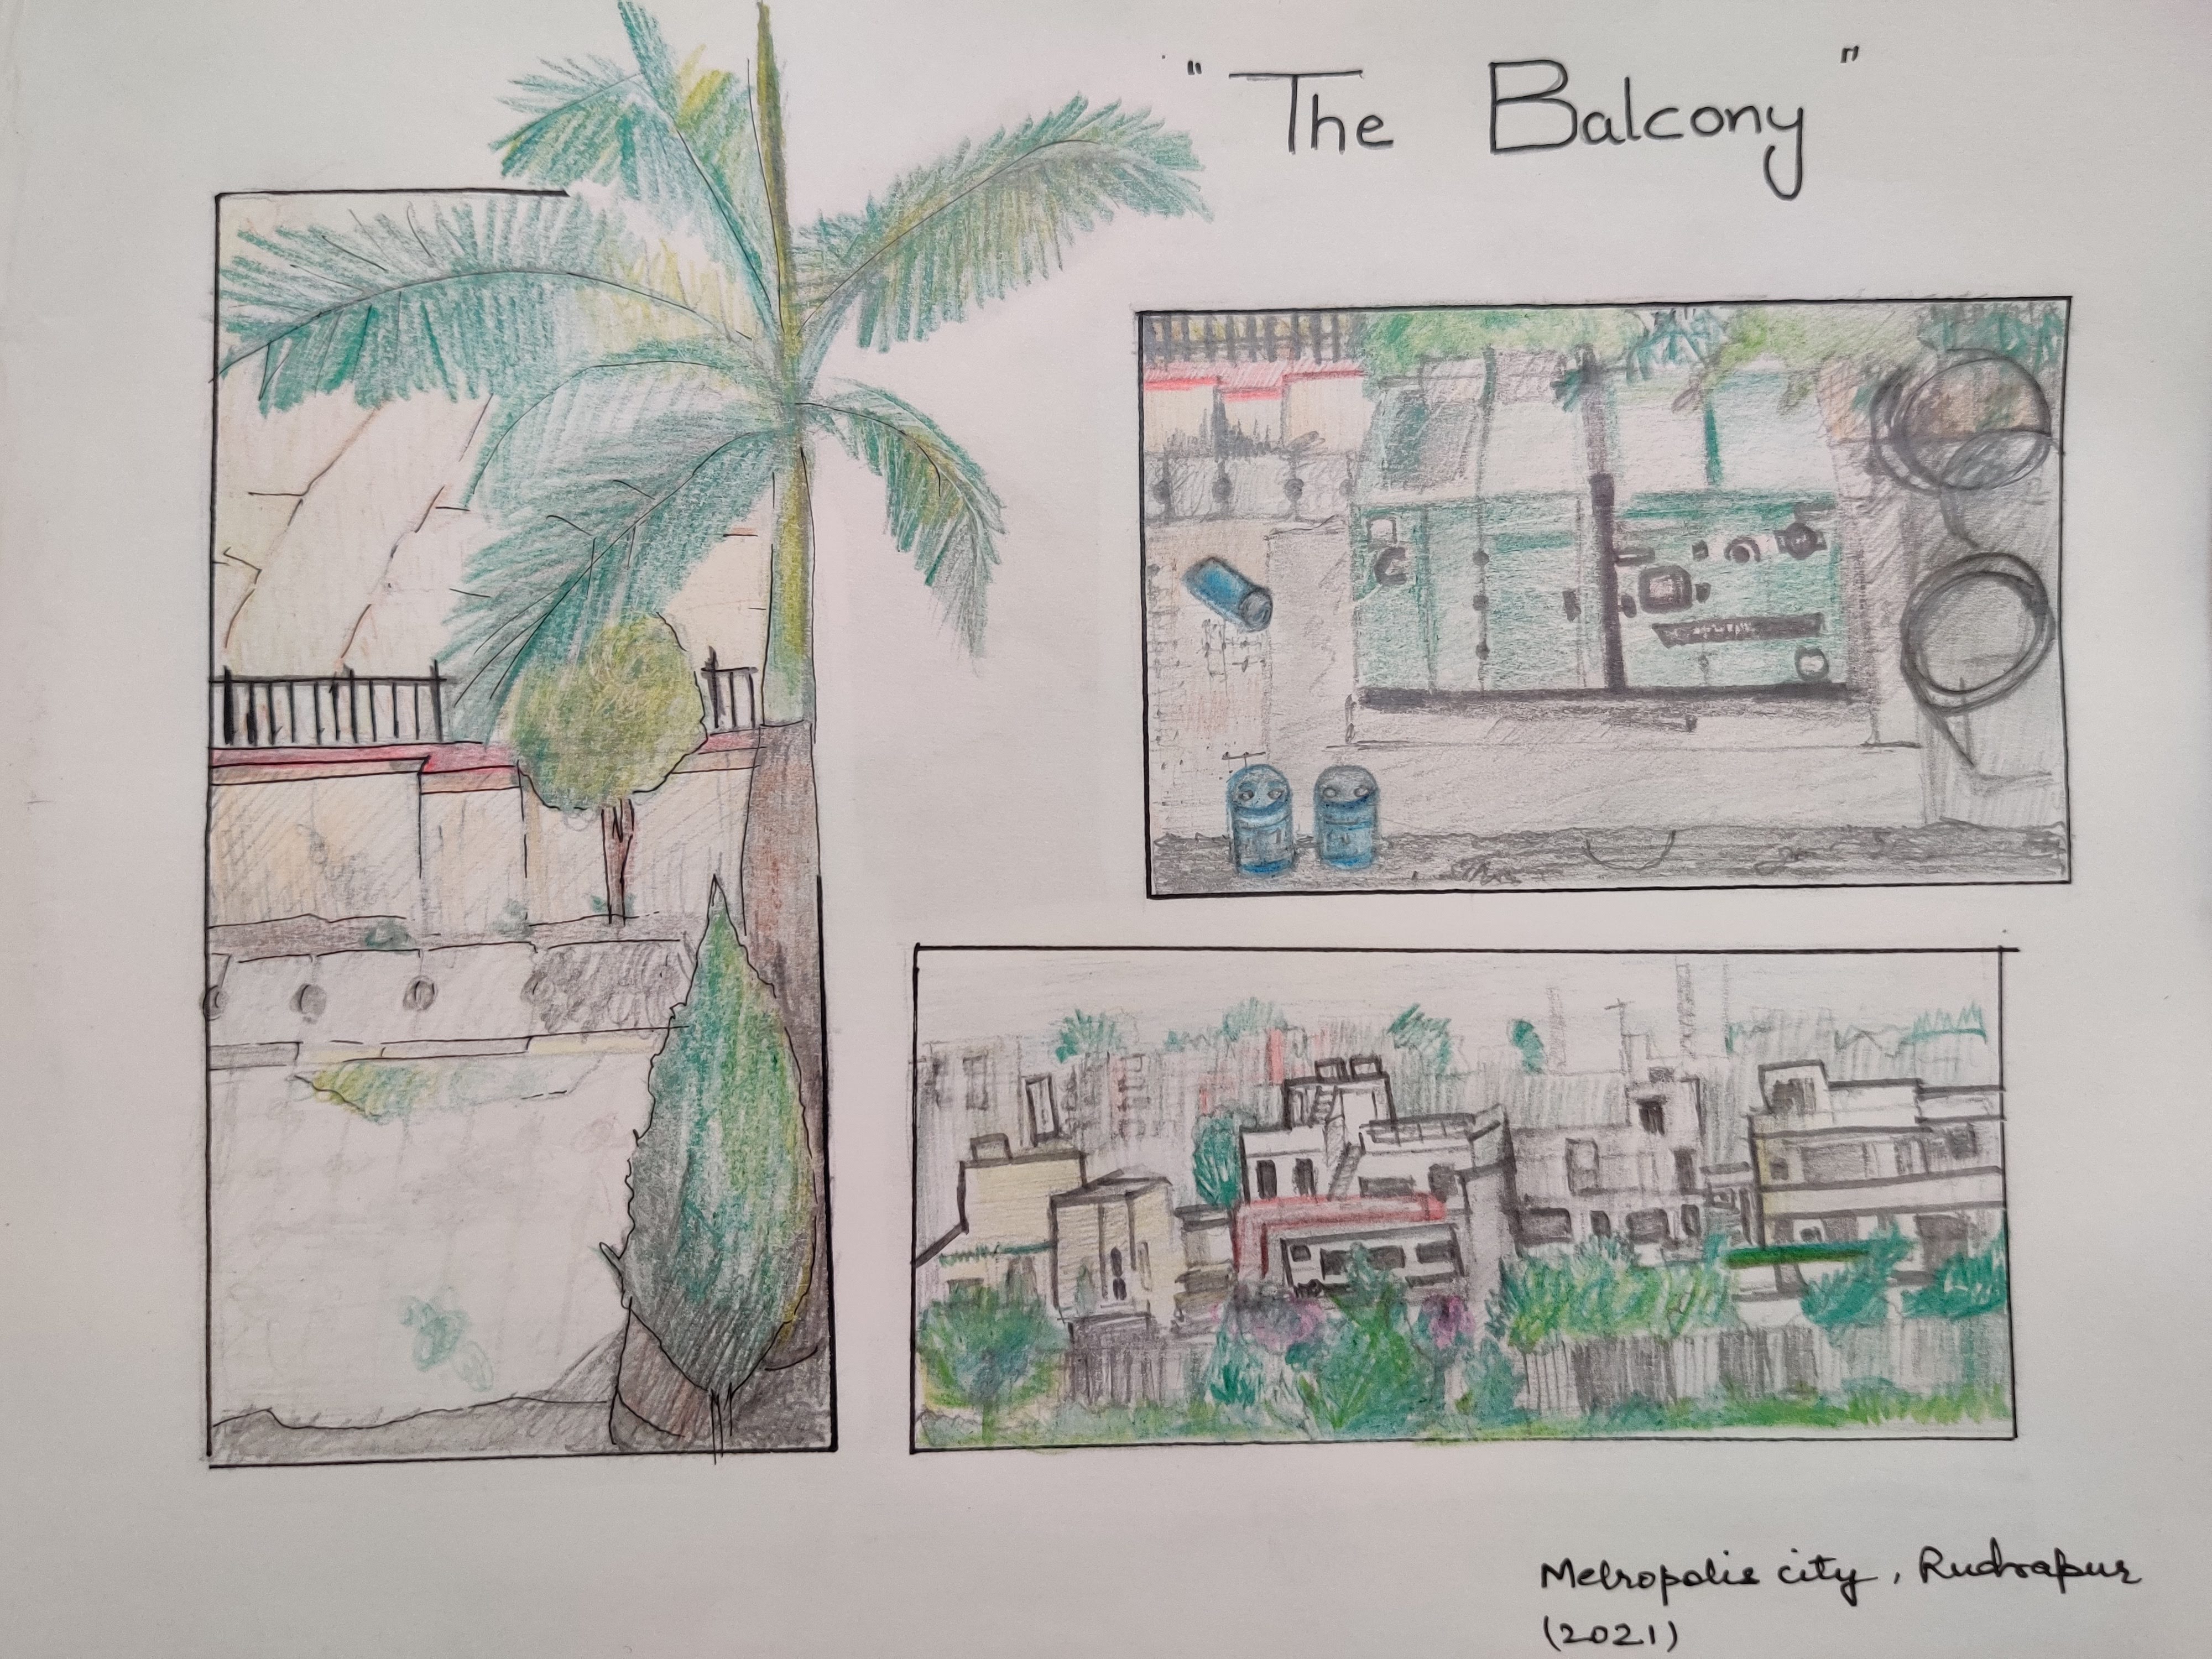 "The Balcony"
Metropolis city, Rudrapur
(2021)